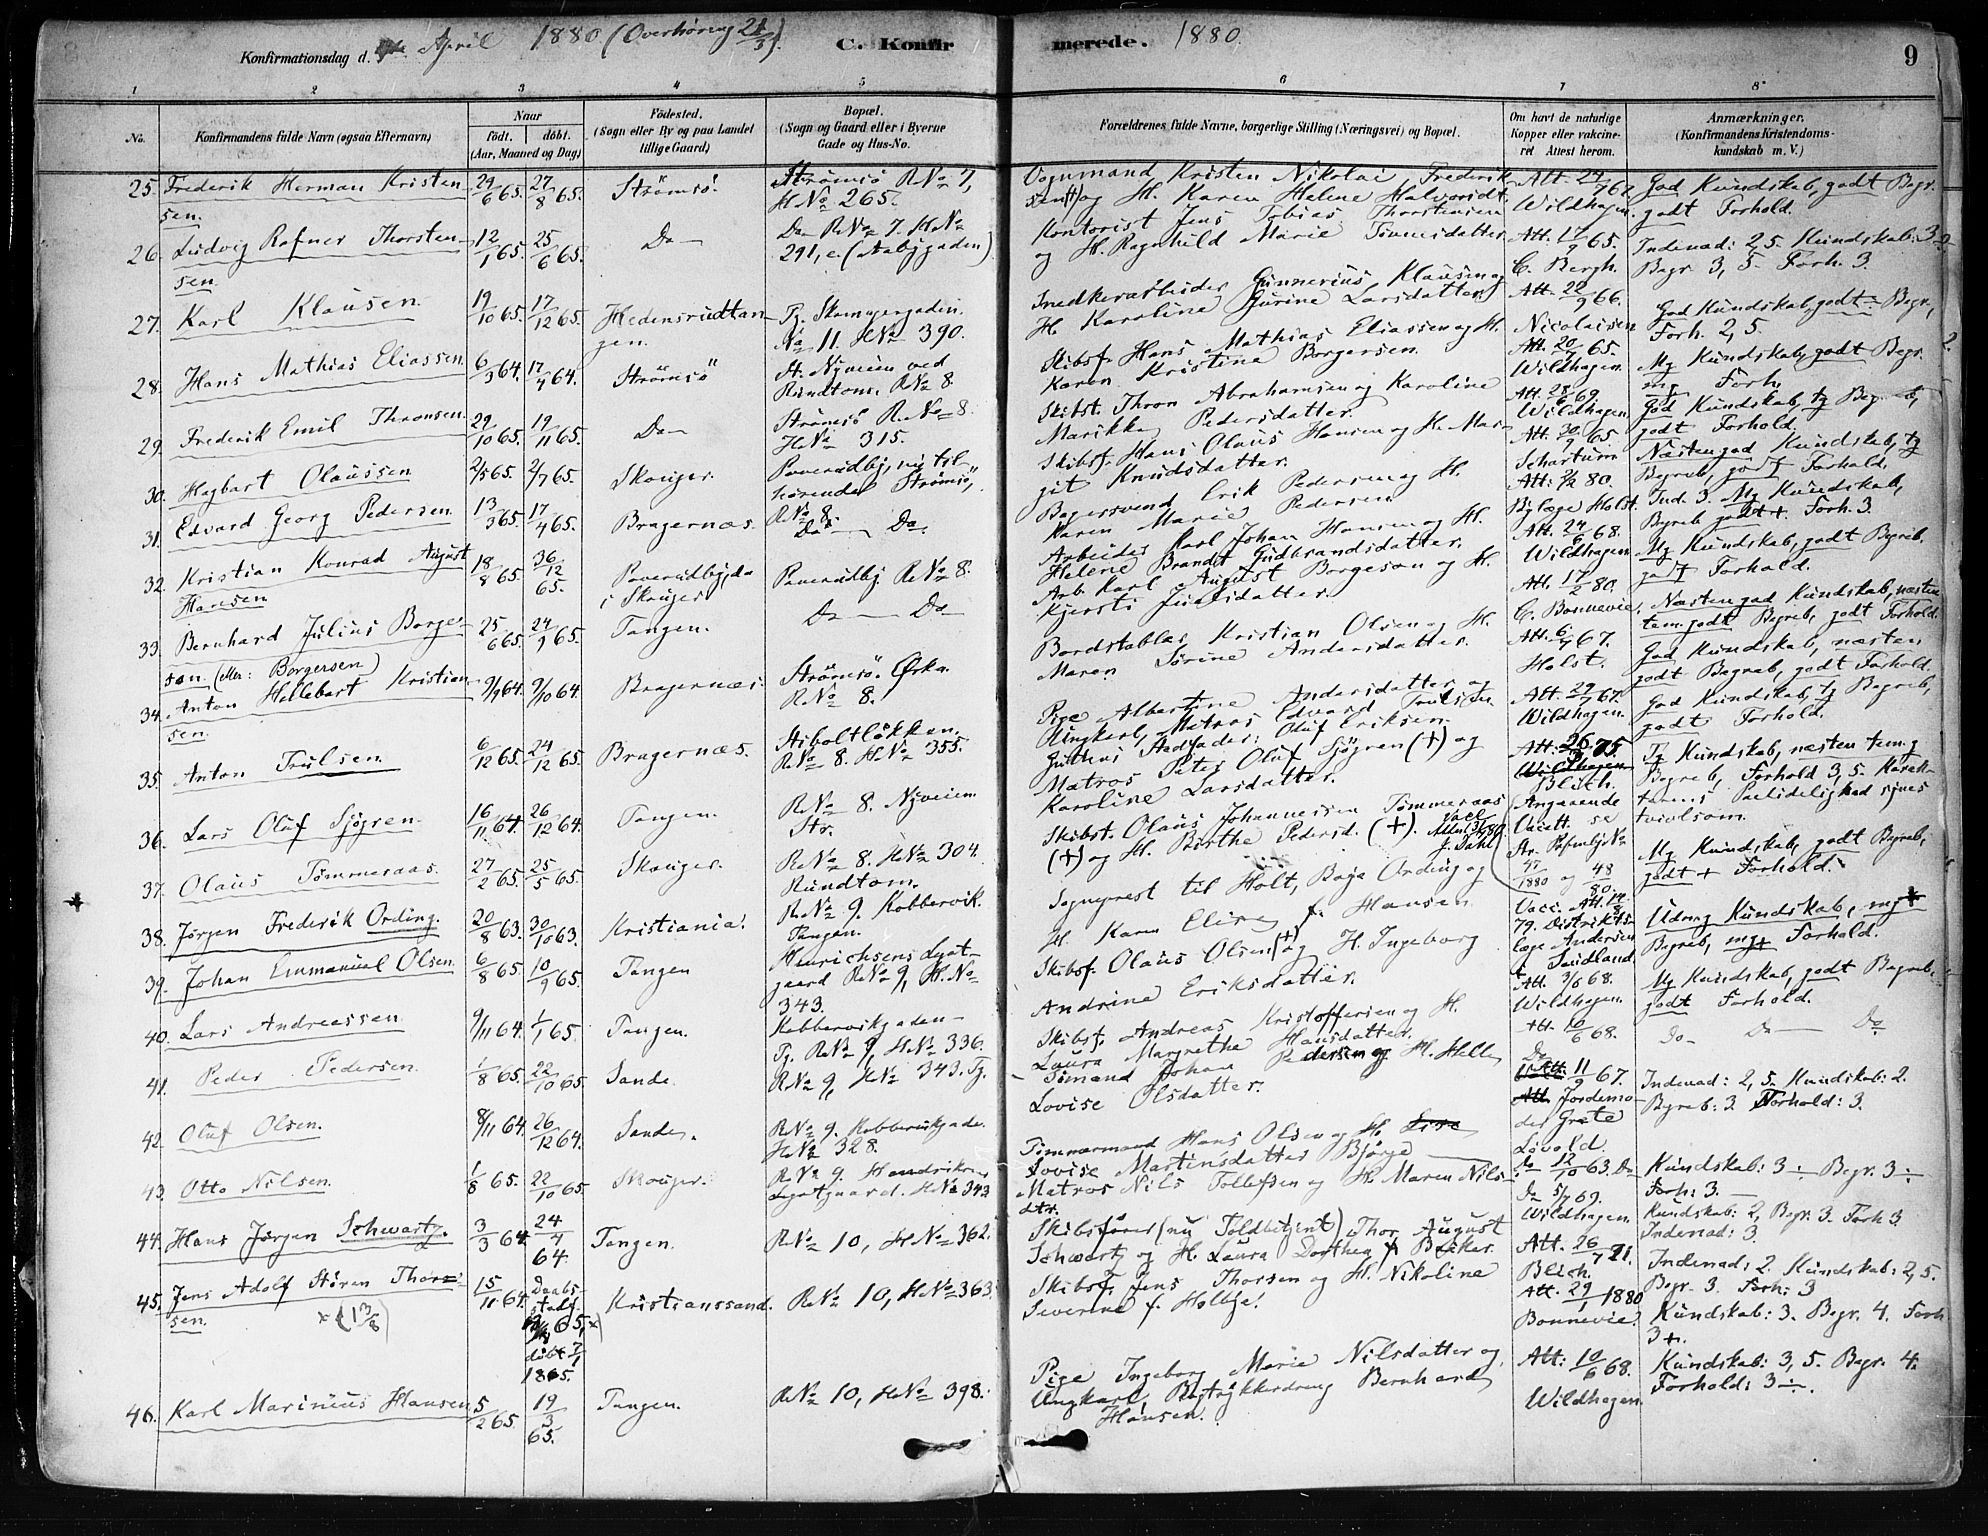 Konfirmationsdag d. April 1880 (Overhöring 21/3). C. Konfirmerede. 1880. 9
1 2 3 4 5 6 7 8
No.
Konfirmandens fulde Navn (ogsaa Efternavn)
Naar
födt. döbt.
(Aar, Maaned og Dag)
Födested.
(Sogn eller By og paa Landet
tillige Gaard)
Bopæl.
(Sogn og Gaard eller i Byerne
Gade og Hus-No.
Forældrenes fulde Navne, borgerlige Stilling (Næringsvei) og Bopæl.
Om havt de naturlige
Kopper eller vakcine-
ret Attest herom.
Anmærkninger.
(Konfirmandens Kristendoms-
kundskab m. V.)
25. Frederik Herman Kristen-
sen. 29/6 65. 27/8 65. Strömsö. Strömsö R.No 7,
H No 265. Vognmand Kristen Nikolai Frederik-
sen (+) og H. Karen Helene Halvorsdt. Att. Wildhagen. God Kundskab, godt Begr.
godt Forhold.
26. Ludvig Rafner Thorsten-
sen. 12/1 65. 25/6 65. Do Do R.No 7. H.No
291, c. (Aabygaden) Kontorist Jens Tobias Thorstensen
og H. Ragnhild Marie Tönnesdatter. Att. 17/9 65.
C. Bergh. Indenad: 2,5. Kundskab: 3.
Begr. 3,5. Forh. 3.
27. Karl Klausen. 19/10 65. 17/12 65. Hedensrudtan-
gen. Tg. Skomagergaden.
No 11. H.No 390. Snedkerarbeider Gunnerius Klausen og
H. Karoline Gurine Larsdatter. Att. 22/9 66.
Nicolaisen God Kundskab, godt Begr.,
Forh. 2,5.
28. Hans Mathias Eliassen. 6/3 64. 17/4 64. Strömsö St. Nyveien ved
Rundtom. R.No 8. Skibsf. Hans Mathias Eliassen og H.
Karen Kristine Borgersen. Att. 20/7 65.
Wildhagen. Mg Kundskab, godt Begr.
mg Forh.
29. Frederik Emil Thronsen. 29/10 65. 19/11 65. Do Strömsö R.No 8.
H.No 315. Skibst. Thron Abrahamsen og Karoline
Marikke Pedersdatter. Att. 69.
Wildhagen. God Kundskab, tg Begreb,
godt Forhold.
30. Hagbart Olaussen 2/5 65. 2/7 65. Skouger. Paverudby, nu til-
hörende Strömsö,
R.No 8. Skibsf. Hans Olaus Hansen og H. Mar-
git Knudsdatter. Att. 30/9 65
Schartum Næsten god Kundskab, tg
Begreb, godt Forhold.
31. Edvard Georg Pedersen. 13/3 65. 17/4 65. Bragernæs. Do Do Bagersvend Erik Pedersen og H.
Karen Marie Pedersen Att. 80.
Bylæge Holst. Ind. 3. Mg Kundskab,
Begreb godt +. Forh. 3.
32. Kristian Konrad August
Hansen 18/8 65. 36/12 65. Paverudby, da
i Skouger Paverudby R.No 8. Arbeider Karl Johan Hansen og H.
Helene Brandt Gudbrandsdatter. Att. 24/6 68.
Wildhagen Mg Kundskab, godt Begreb,
godt Forhold.
33. Bernhard Julius Borge-
son. (eller: Borgersen) 25/6 65. 24/9 65. Tangen. Do Do Arb. Karl August Borgeson og H.
Kjersti Juelsdatter. Att. 17/2 80.
C. Bonnevie. Næsten god Kundskab, næsten
tem. godt Begreb, godt Forhold.
34. Anton Hellebart Kristian-
sen. 9/9 64. 9/10 64. Bragernæs. Strömsö. Örka.
R.No 8. Bordstabler Kristian Olsen og H.
Maren Sörine Andersdatter. Att. 6/7 67.
Holst. God Kundskab, næsten
godt Begreb, godt Forhold.
35. Anton Trulsen. 6/12 65. 24/12 65. Bragernæs. Aiboltlökken.
R.No 8. H.No 355. Pige Albertine Andersdatter og
Ungkarl, Matros Edvard Trulsen.
Guttens Stedfader: Oluf Eriksen. Att. 29/7 67.
Wildhagen. God Kundskab, tg Begreb,
godt Forhold.
36. Lars Oluf Sjögren. 16/11 64. 26/12 64. Tangen. R.No 8. Nyveien
Str. Matros Peter Oluf Sjögren (+) og
Karoline Larsdatter. Att. 75
Wildhagen
Blich. Tg Kundskab, næsten tem. g
Begreb, Forhold 3,5. Karak-
terens Paalidelighed synes
tvivlsom.
37. Olaus Tömmeraas. 27/2 65. 25/5 65. Skouger. R.No 8. H.No 304.
Rundtom. Skibst. Olaus Johannesen Tömmeraas
(+) og H. Birthe Pedersd. (+). J. Dahl Angaaende
Vaccatt. se
47/1880 og 48/80. Mg Kundskab, godt Begreb,
godt + Forhold.
38. Jörgen Frederik Ording. 20/8 63. 30/10 63. Kristiania. R.No 9. Kobbervik.
Tangen. Sogneprest til Holt, Boje Ording og
H. Karen Elise f. Hansen Vacc. Att. 79. Distrikts-
læge Andersen
Sandland Udm. g Kundskab, mg +
Begreb, mg + Forhold.
39. Johan Emmanuel Olsen. 6/8 65. 10/9 65. Tangen Henrichsens Legat-
gaard R.No 9, H.No
343. Skibsf. Olaus Olsen (+) og H. Ingeborg
Andrine Eriksdatter. Att. 3/6 68.
Wildhagen. Mg Kundskab, godt Begreb,
godt Forhold.
40. Lars Andreassen 9/11 64. 1/1 65. Tangen. Kobbervikgaden
Tg. R.No 9, H.No 336. Skibsf. Andreas Kristoffersen og H.
Laura Margrethe Hansdatter. Att. 10/6 68.
Do Do Do Do
41. Peder Pedersen. 1/8 65. 22/10 65. Sande. R.No 9, H.No 343. Tg. Sömand Johan Pedersen og H. Helle
Lovise Olsdatter. Att. 11/9 67.
Jordemo-
der Grete
Lövold Indenad: 2,5. Kundskab: 2.
Begreb: 3. Forhold: 3.
42. Oluf Olsen. 8/11 64. 26/12 64. Sande. R.No 9. Kobbervikgade.
H.No 328. Tömmermand Hans Olsen og H. Lise
Lovise Martinsdatter Björge Do 12/10 63. Do Kundskab: 3 Begr. 3
Forh: 3.
43. Otto Nilsen. 1/8 65. 22/10 65. Skouger. R.No 9. Hendriksens
Legatgaard. H.No 343 Matros Nils Tollefsen og H. Maren Nils-
dtr. Do 5/7 69.
Wildhagen. Kundskab: 2, Begr. 3. Forh 3
Indenad: 3.
44. Hans Jörgen Schwartz. 3/3 64 24/4 64. Tangen. R.No 10, H.No 362. Skibsförer (nu Toldbetjent) Thor August
Schwartz og H. Laura Dorthea f. Becker. Att. 26/7 71.
Blich. Indenad: 2. Kundskab: 2,5.
Begr. 3. Forh: 3
45. Jens Adolf Stören Thor-
sen. 15/11 64. Daabs-
döbt 7/1
1865. Kristianssand. R.No 10, H.No 363. Skibsf. Jens Thorsen og H. Nikoline
Severine f. Holbye. Att. 29/1 1880
Bonnevie. Kundskab: 3. Begr. 4. Forh
3+.
46. Karl Marinius Hansen 5/2 65. 19/3 65. Tangen. R.No 10, H.No 398. Pige Ingeborg Marie Nilsdatter og
Ungkarl, Bogtrykkerdreng Bernhard
Hansen. Att: 10/6 68.
Wildhagen. Kundskab: 3,5. Begr. 4.
Forhold: 3